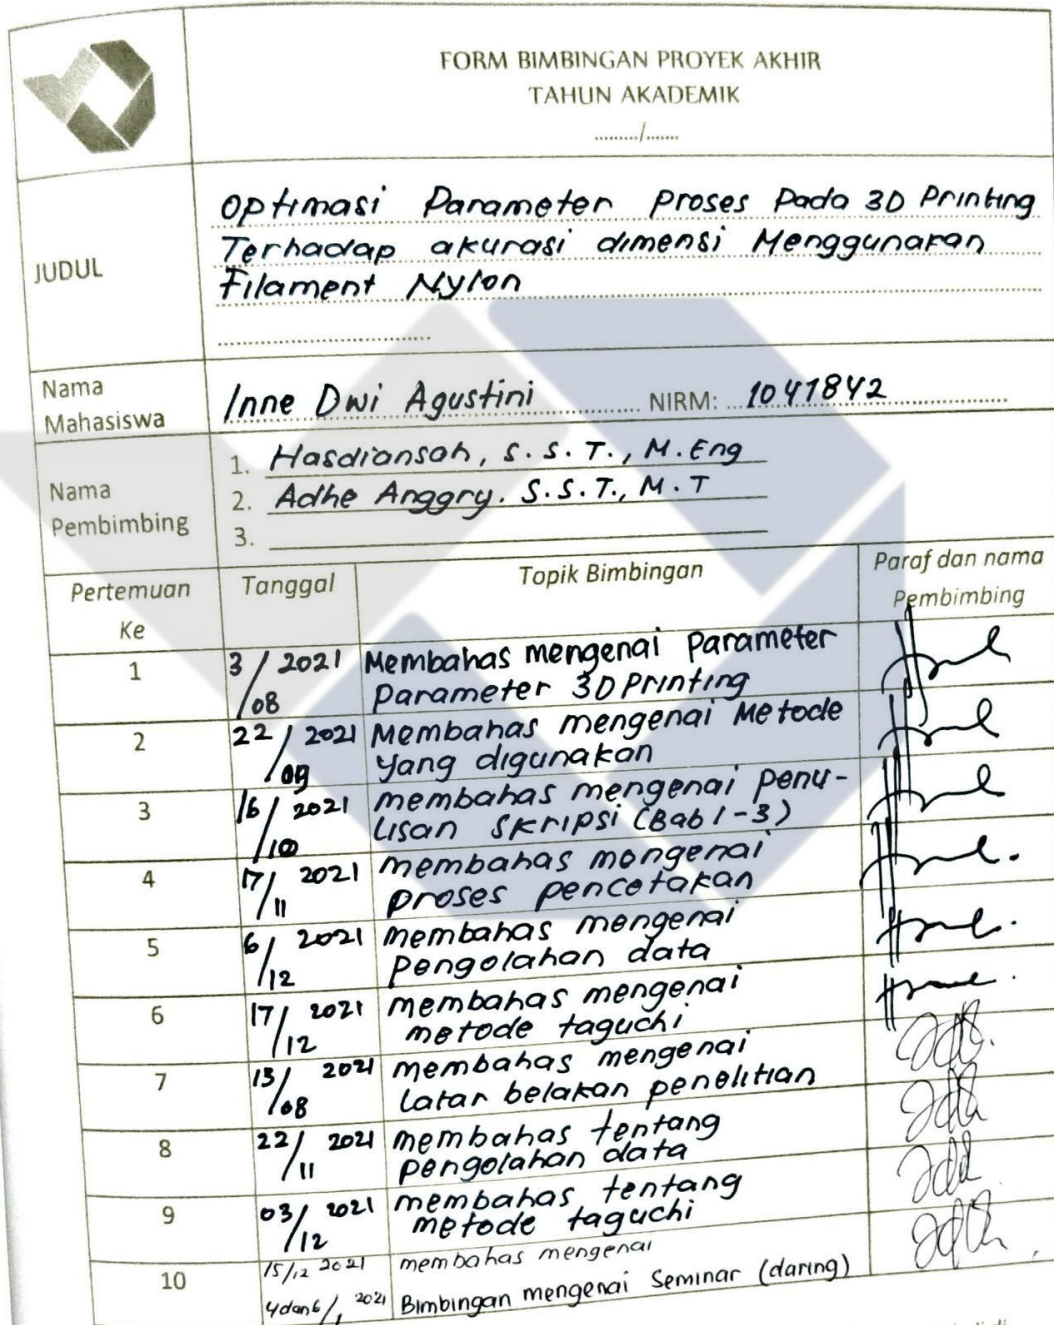 FORM BIMBINGAN PROYEK AKHIR
TAHUN AKADEMIK
........./.......
JUDUL
Optimasi Parameter Proses Pada 3D Printing
Terhadap akurasi dimensi Menggunakan
Filament Nylon
Nama
Mahasiswa
Inne Dwi Agustini NIRM: 1041842
Nama
Pembimbing
1. Hasdiansah, S.S.T., M.Eng
2. Adhe Anggry. S.S.T., M.T
3.
Pertemuan
Ke
Tanggal
Topik Bimbingan
Paraf dan nama
Pembimbing
1 3/08 2021 Membahas mengenai Parameter
Parameter 3D Printing
2 22/09 2021 Membahas mengenai Metode
yang digunakan
3 16/10 2021 membahas mengenai penu-
lisan skripsi (Bab 1-3)
4 17/11 2021 membahas mengenai
proses pencetakan
5 6/12 2021 membahas mengenai
pengolahan data
6 17/12 2021 membahas mengenai
metode taguchi
7 13/08 2021 membahas mengenai
latar belakan penelitian
8 22/11 2021 membahas tentang
pengolahan data
9 03/12 2021 membahas tentang
metode taguchi
10 15/12 2021 membahas mengenai
4 dan 6/1 2021 Bimbingan mengenai Seminar (daring)